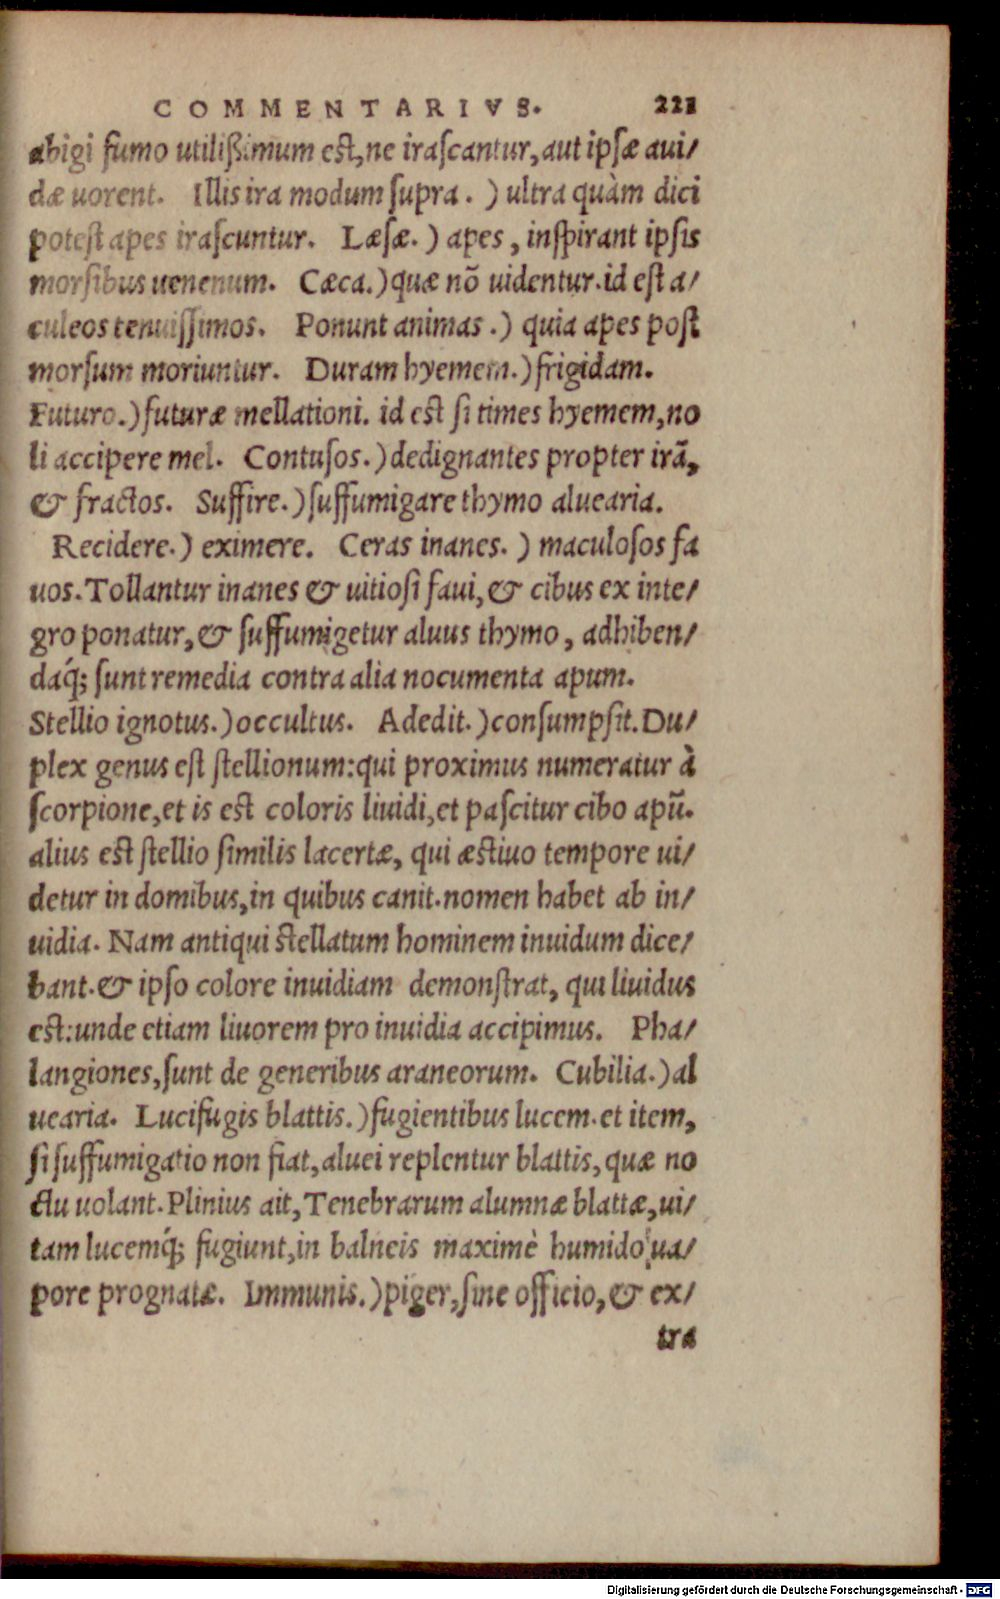 COMMENTARIVS. 221
abigi fumo utilißimum est, ne irascantur, aut ipsæ aui/
dæ uorent. Illis ira modum supra.) ultra quàm dici
potest apes irascuntur. Læsæ.) apes, inspirant ipsis
morsibus uenenum. Cæca.) quæ nõ uidentur. id est a/
culeos tenuissimos. Ponunt animas.) quia apes post
morsum moriuntur. Duram hyemem.) frigidam.
Futuro.) futuræ mellationi. id est si times hyemem, no
li accipere mel. Contusos.) dedignantes propter irã,
& fractos. Suffire.) suffumigare thymo aluearia.
Recidere.) eximere. Ceras inanes.) maculosos fa
uos. Tollantur inanes & uitiosi faui, & cibus ex inte/
gro ponatur, & suffumigetur aluus thymo, adhiben/
daq́; sunt remedia contra alia nocumenta apum.
Stellio ignotus.) occultus. Adedit.) consumpsit. Du/
plex genus est stellionum: qui proximus numeratur à
scorpione, et is est coloris liuidi, et pascitur cibo apũ.
alius est stellio similis lacertæ, qui æstiuo tempore ui/
detur in domibus, in quibus canit. nomen habet ab in/
uidia. Nam antiqui stellatum hominem inuidum dice/
bant. & ipso colore inuidiam demonstrat, qui liuidus
est: unde etiam liuorem pro inuidia accipimus. Pha/
langiones, sunt de generibus araneorum. Cubilia.) al
uearia. Lucifugis blattis.) fugientibus lucem. et item,
si suffumigatio non fiat, aluei replentur blattis, quæ no
ctu uolant. Plinius ait, Tenebrarum alumnæ blattæ, ui/
tam lucemq́; fugiunt, in balneis maximè humido ua/
pore prognatæ. Immunis.) piger, sine officio, & ex/
tra
Digitalisierung gefördert durch die Deutsche Forschungsgemeinschaft - DFG